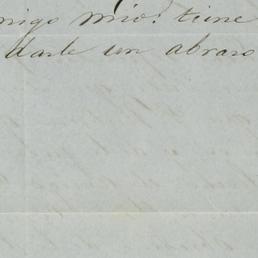 migo mio: tiene
darle un abraso